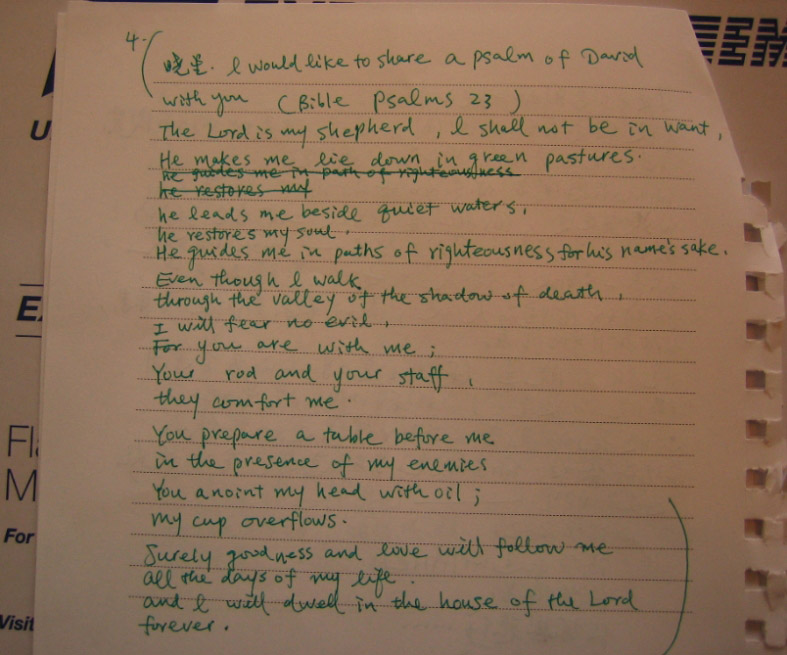 4.
晓星. I would like to share a psalm of David
with you (Bible Psalms 23)
The Lord is my shepherd, I shall not be in want,
He makes me lie down in green pastures.
he guides me in path of righteousness
he restores my
he leads me beside quiet waters,
he restores my soul.
He guides me in paths of righteousness for his name's sake.
Even though I walk
through the valley of the shadow of death,
I will fear no evil,
For you are with me;
Your rod and your staff,
they comfort me.
You prepare a table before me
in the presence of my enemies
You anoint my head with oil;
my cup overflows.
Surely goodness and love will follow me
all the days of my life.
and I will dwell in the house of the Lord
forever.
U
E
Fl
M
For
Visit